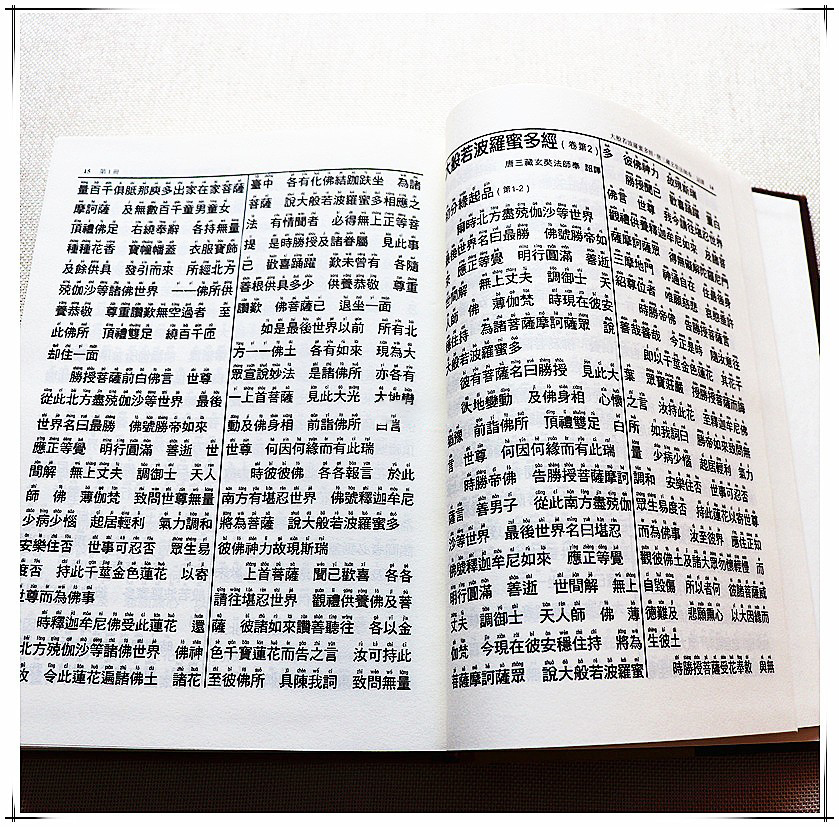 大般若波羅蜜多經(卷第2)
唐三藏玄奘法師奉 詔譯
初分緣起品(第1-2)
爾時北方盡殑伽沙等世界
最後世界名曰最勝 佛號勝帝如
來 應正等覺 明行圓滿 善逝
世間解 無上丈夫 調御士 天
人師 佛 薄伽梵 時現在彼安
穩住持 為諸菩薩摩訶薩眾 說
大般若波羅蜜多
彼有菩薩名曰勝授 見此大
伏地變動 及佛身相 心懷
猶豫 前詣佛所 頂禮雙足 白
言 世尊 何因何緣而有此瑞
時勝帝佛 告勝授菩薩摩訶
薩言 善男子 從此南方盡殑伽
沙等世界 最後世界名曰堪忍
佛號釋迦牟尼如來 應正等覺
明行圓滿 善逝 世間解 無上
丈夫 調御士 天人師 佛 薄
伽梵 今現在彼安穩住持 將為
菩薩摩訶薩眾 說大般若波羅蜜
多 彼佛神力 故現斯瑞
勝授聞已 歡喜踊躍 重白
佛言 世尊 我今請往堪忍世界
觀禮供養釋迦牟尼如來 及諸菩
薩摩訶薩眾 得無礙解陀羅尼門
三摩地門 神通自在 住最後身
紹尊位者 唯願慈悲 哀愍垂許
時勝帝佛 告勝授菩薩言
善哉善哉 今正是時 隨汝意往
即以千莖金色蓮花 其花千
葉 眾寶莊嚴 授勝授菩薩而誨
之言 汝持此花 至釋迦牟尼佛
所 如我詞曰 勝帝如來致問無
量 少病少惱 起居輕利 氣力
調和 安樂住否 世事可忍否
眾生易度否 持此蓮花以寄世尊
而為佛事 汝至彼界 應住正知
觀彼佛土及諸大眾勿懷輕慢 而
自毀傷 所以者何 彼諸菩薩威
德難及 悲願熏心 以大因緣而
生彼土
時勝授菩薩受花奉敕 與無
15 第1冊
量百千俱胝那庾多出家在家菩薩
摩訶薩 及無數百千童男童女
頂禮佛足 右繞奉辭 各持無量
種種花香 寶幢幡蓋 衣服寶飾
及餘供具 發引而來 所經北方
殑伽沙等諸佛世界 一一佛所供
養恭敬 尊重讚歎無空過者 至
此佛所 頂禮雙足 繞百千匝
却住一面
勝授菩薩前白佛言 世尊
從此北方盡殑伽沙等世界 最後
世界名曰最勝 佛號勝帝如來
應正等覺 明行圓滿 善逝 世
間解 無上丈夫 調御士 天人
師 佛 薄伽梵 致問世尊無量
少病少惱 起居輕利 氣力調和
安樂住否 世事可忍否 眾生易
度否 持此千莖金色蓮花 以寄
世尊而為佛事
時釋迦牟尼佛受此蓮花 還
北方殑伽沙等諸佛世界 佛神
故 令此蓮花遍諸佛土 諸花
臺中 各有化佛結跏趺坐 為諸
菩薩 說大般若波羅蜜多相應之
法 有情聞者 必得無上正等菩
提 是時勝授及諸眷屬 見此事
已 歡喜踊躍 歎未曾有 各隨
善根供具多少 供養恭敬 尊重
讚歎 佛菩薩已 退坐一面
如是最後世界以前 所有北
方一一佛土 各有如來 現為大
眾宣說妙法 是諸佛所 亦各有
一上首菩薩 見此大光 大地變
動及佛身相 前詣佛所 白言
世尊 何因何緣而有此瑞
時彼彼佛 各各報言 於此
南方有堪忍世界 佛號釋迦牟尼
將為菩薩 說大般若波羅蜜多
彼佛神力故現斯瑞
上首菩薩 聞已歡喜 各各
請往堪忍世界 觀禮供養佛及菩
薩 彼諸如來讚善聽往 各以金
色千寶蓮花而告之言 汝可持此
至彼佛所 具陳我詞 致問無量